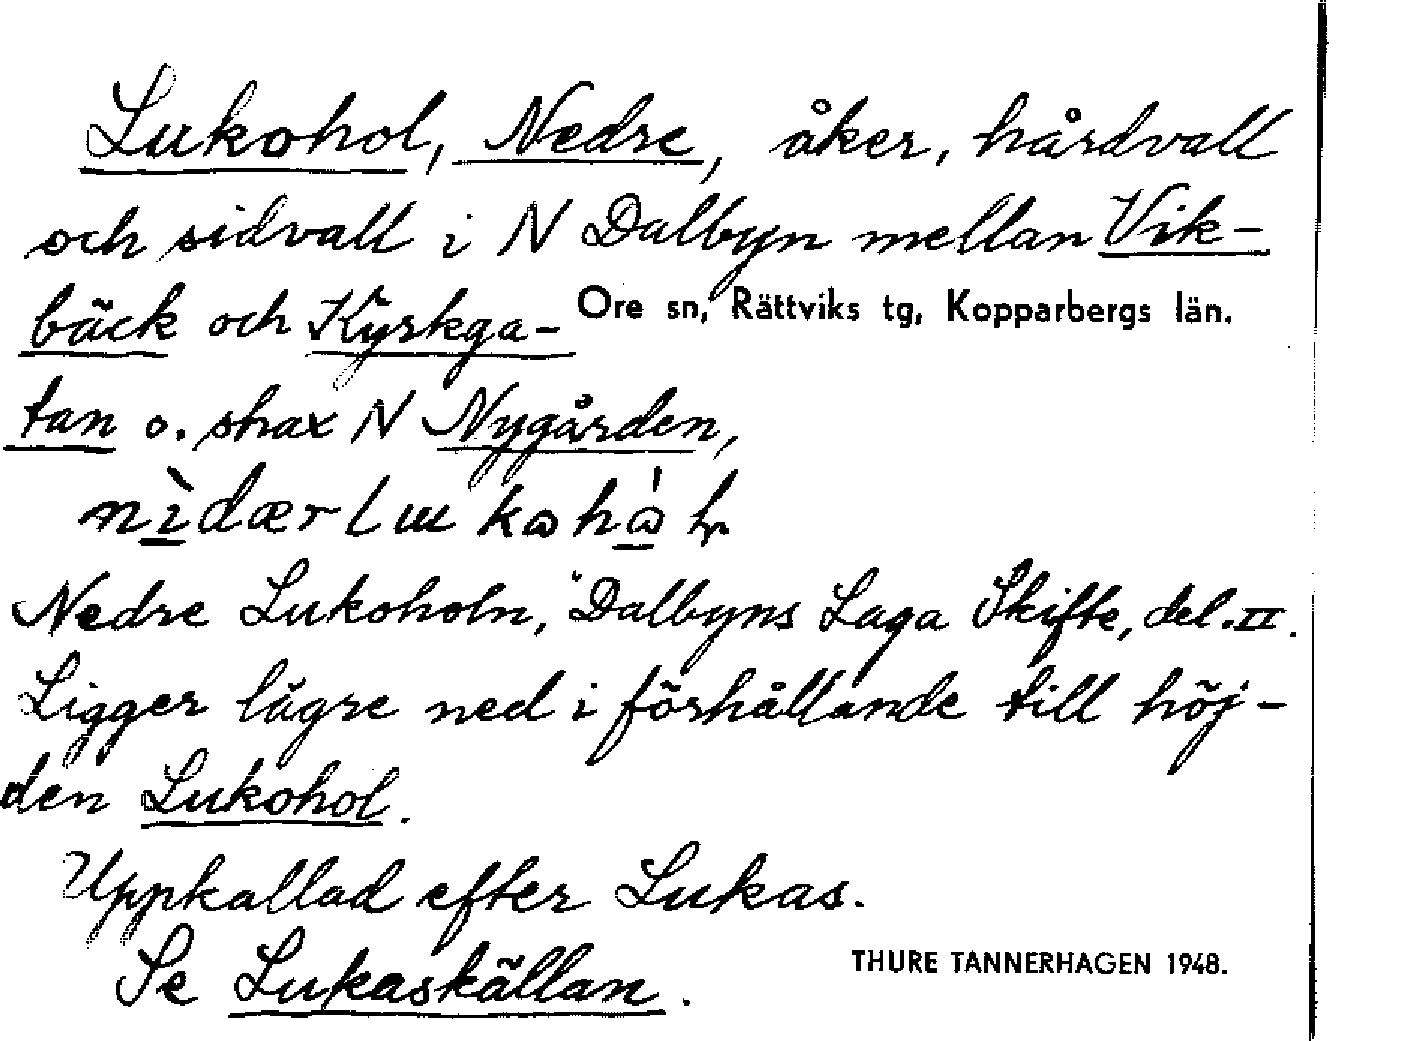 Lukohol, Nedre, åker, hårdvall
och sidvall i N Dalbyn mellan Vik-
bäck och Kyrkga-
Ore sn, Rättviks tg, Kopparbergs län.
tan o. strax N Nygården,
Nedre Lukoholn, Dalbyns Laga Skifte, del. II.
Ligger lägre ned i förhållande till höj-
den Lukohol.
Uppkallad efter Lukas.
Se Lukaskällan.
THURE TANNERHAGEN 1948.